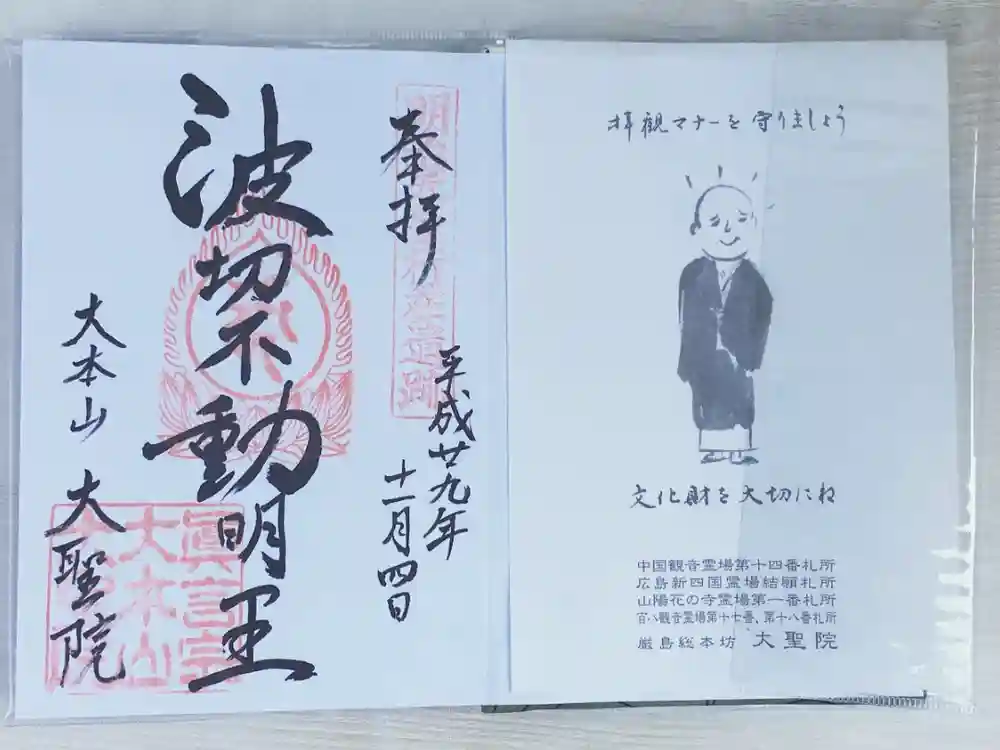 奉拝
平成廿九年
十一月四日
波切不動明王
大本山 大聖院
拝観マナーを守りましょう
文化財を大切にね
中国観音霊場第十四番札所
広島新四国霊場結願札所
山陽花の寺霊場第一番札所
百八観音霊場第十七番、第十八番札所
厳島総本坊 大聖院